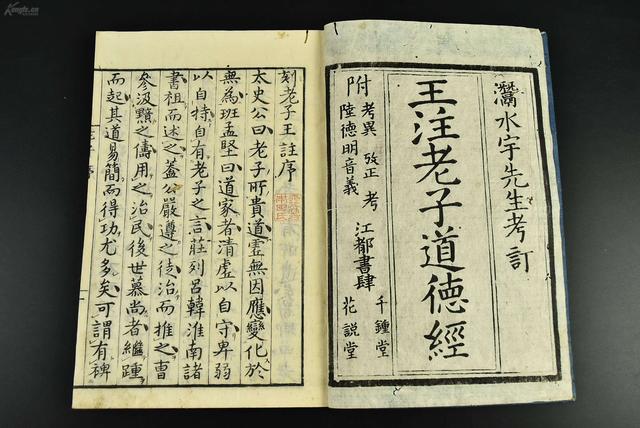 灊水宇先生考訂
王注老子道德經
附 考異 攷正 考
陸德明音義
江都書肆 千鍾堂
花説堂
刻老子王註序
太史公曰老子所貴道虛無因應變化於
無為班孟堅曰道家者清虛以自守卑弱
以自持自有老子之言莊列呂韓淮南諸
書祖而述之蓋公嚴遵之徒治而推之曹
參汲黯之儔用之治民後世慕尚者繼踵
而起其道易簡而得功尤多矣可謂有裨
Kongfz.cn